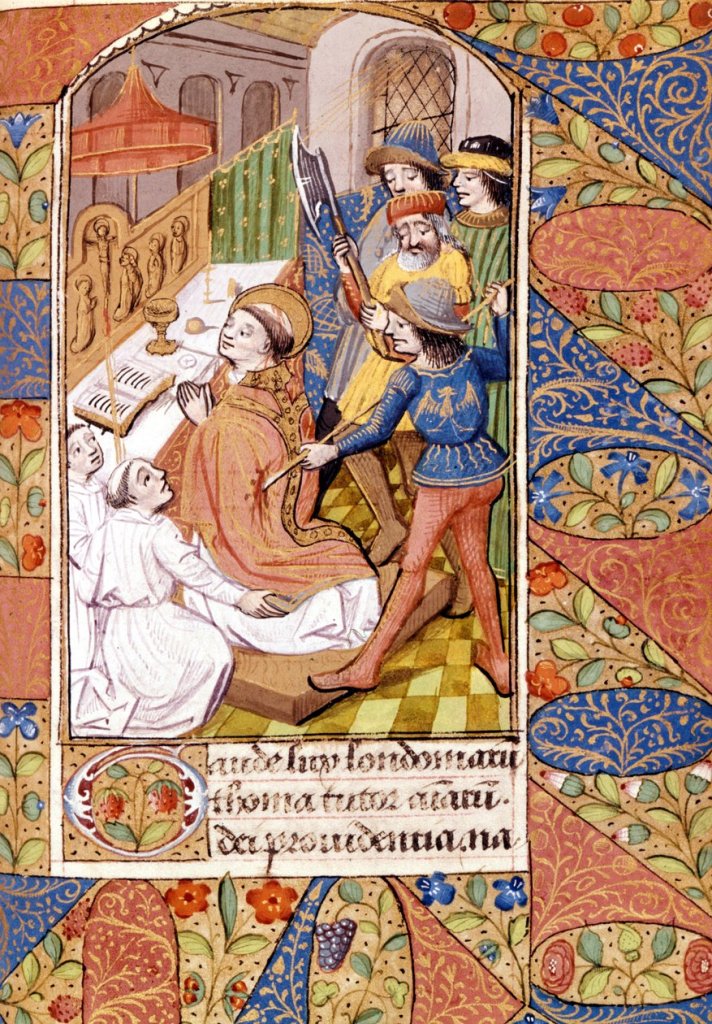 Gaude lux londoniaru
thoma tutor aīarū.
dei prouidentia. na